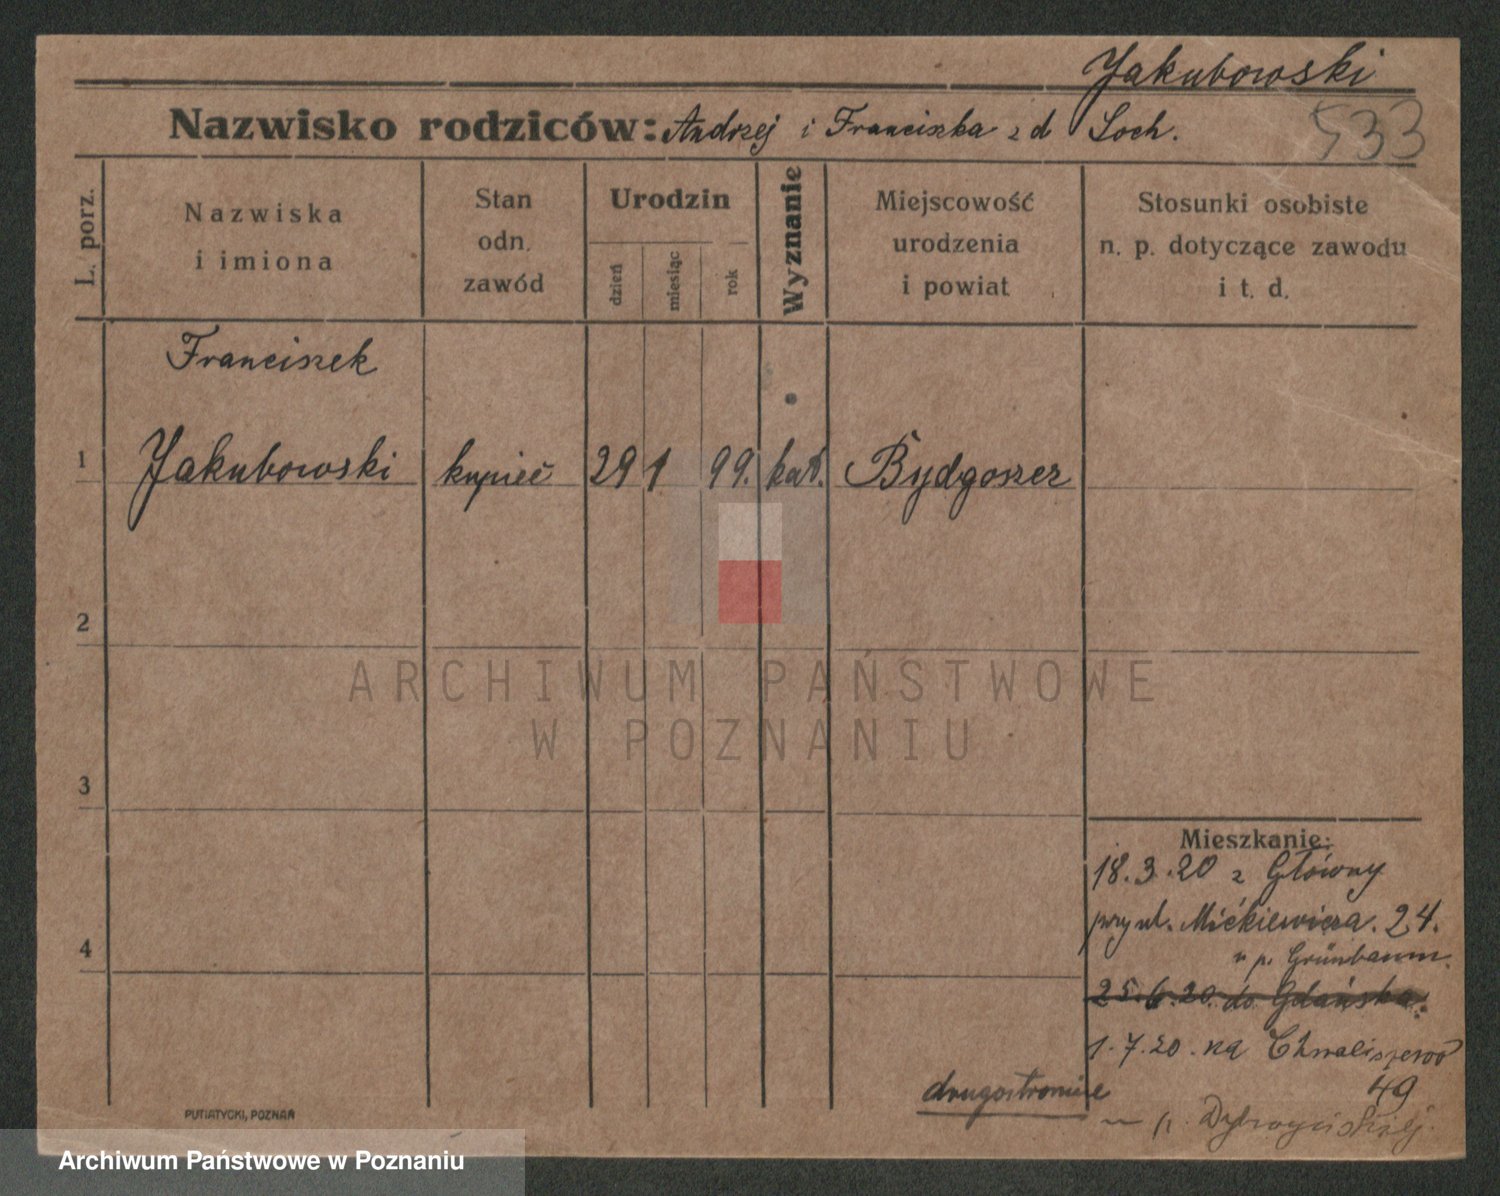 Jakubowski
Nazwisko rodziców: Andrzej i Franciszka z d Soch.
533
L. porz.
Nazwiska
i imiona
Stan
odn.
zawód
Urodzin
dzień
miesiąc
rok
Wyznanie
Miejscowość
urodzenia
i powiat
Stosunki osobiste
n. p. dotyczące zawodu
i t. d.
Franciszek
1 Jakubowski kupiec 29 1 99. kat. Bydgoszcz
2
ARCHIWUM PAŃSTWOWE
W POZNANIU
3
Mieszkanie:
18.3.20 z Główny
przy ul. Mickiewicza. 24.
u p. Grünbaum.
25.6.20. do Gdańska.
1.7.20. na Chwaliszewo
49
4
drugostronnie
p.
PUTIATYCKI, POZNAŃ
Archiwum Państwowe w Poznaniu